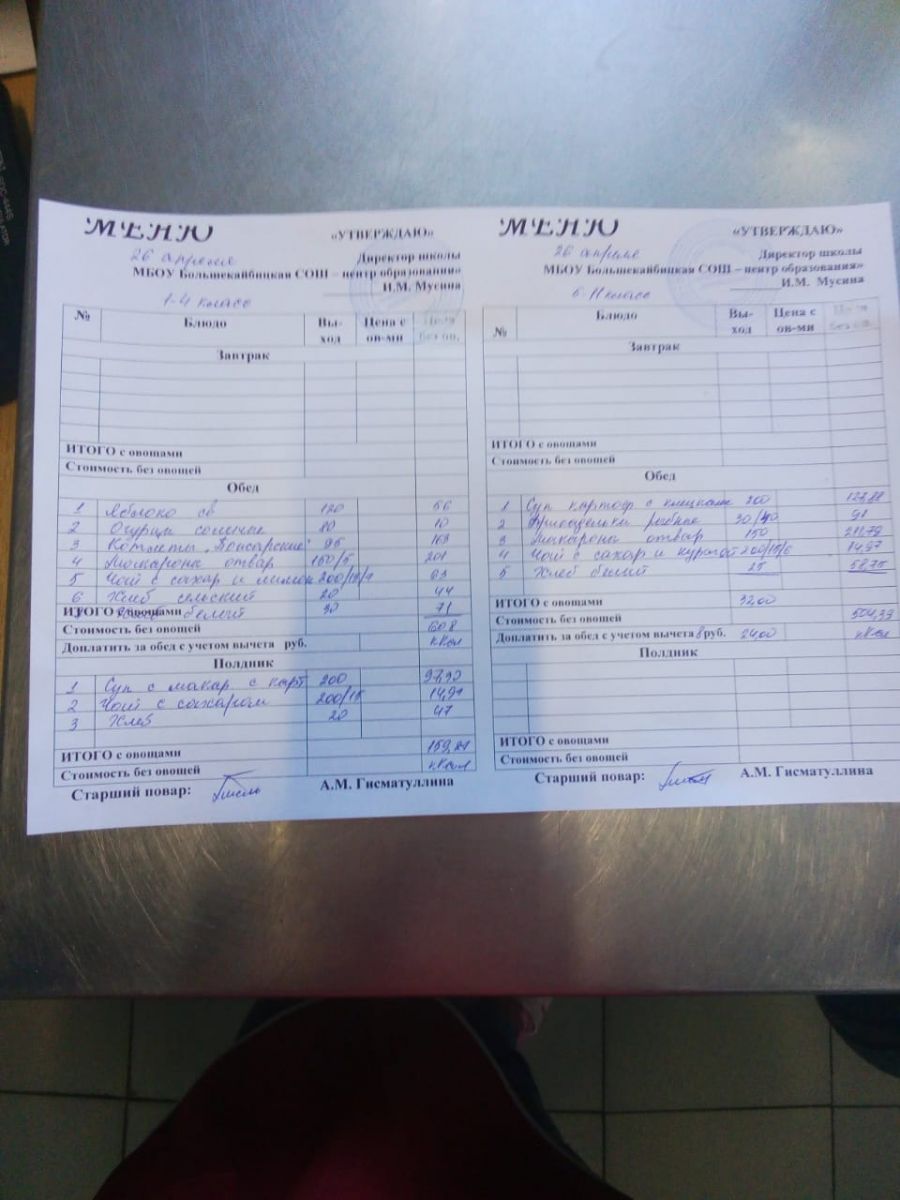 МЕНЮ
«УТВЕРЖДАЮ»
26 апреля
Директор школы
МБОУ Большекайбицкая СОШ – центр образования»
И.М. Мусина
1-4 класс
№ Блюдо Вы-ход Цена с ов-ми без ов.
Завтрак
ИТОГО с овощами
Стоимость без овощей
Обед
1 Яблоко св 120 56
2 Огурцы соленые 80 10
3 Котлеты 95 163
4 Макароны отвар 150/5 201
5 Чай с сахар и лимон 200/15/7 63
6 Хлеб сельский 20 44
ИТОГО с овощами белый 30 71
Стоимость без овощей 608
Доплатить за обед с учетом вычета руб. кКал
Полдник
1 Суп с макар с карт 200 97,90
2 Чай с сахаром 200/15 14,97
3 Хлеб 20 47
ИТОГО с овощами
Стоимость без овощей кКал
Старший повар: А.М. Гисматуллина
МЕНЮ
«УТВЕРЖДАЮ»
26 апреля
Директор школы
МБОУ Большекайбицкая СОШ – центр образования»
И.М. Мусина
класс
№ Блюдо Вы-ход Цена с ов-ми
Завтрак
ИТОГО с овощами
Стоимость без овощей
Обед
1 Суп картоф с клецками 200
2 Фрикадельки рыбные 91
3 Макароны отвар 150
4 Чай с сахар и курагой 200/15/6 14,97
5 Хлеб белый 25 58,75
ИТОГО с овощами 32,00
Стоимость без овощей
Доплатить за обед с учетом вычета 8 руб. 24,00 кКал
Полдник
ИТОГО с овощами
Стоимость без овощей
Старший повар: А.М. Гисматуллина